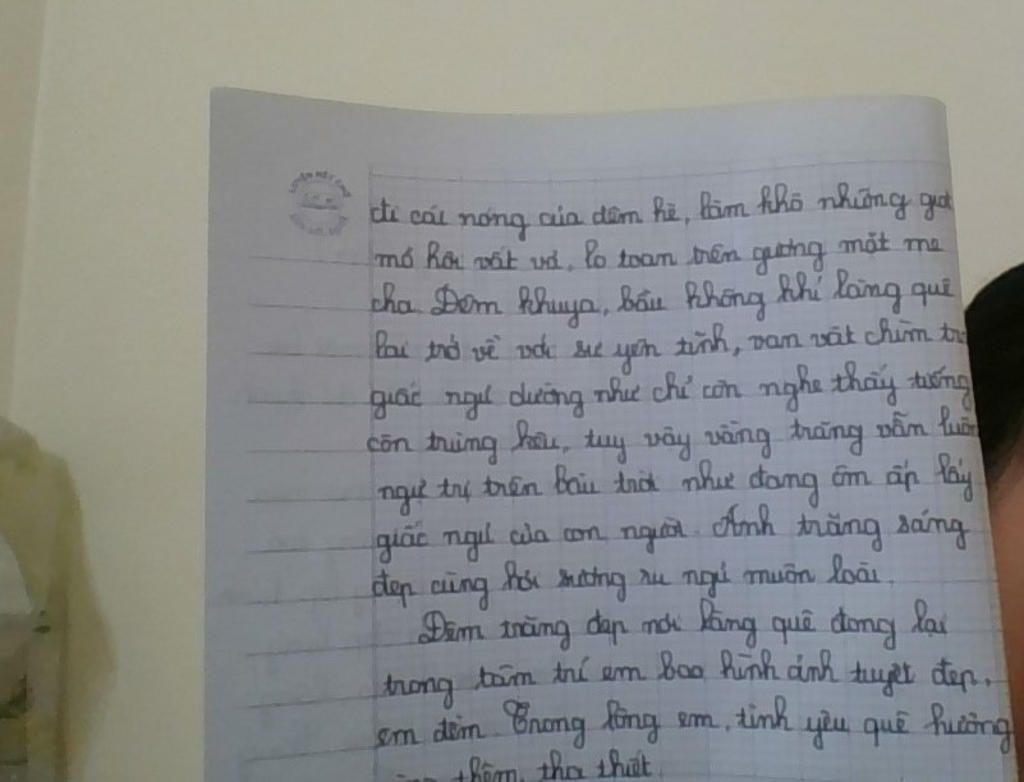 đi cái nóng của đêm hè, làm khô những giọt
mồ hôi vất vả, lo toan trên gương mặt mẹ
cha. Đêm khuya, bầu không khí làng quê
lại trở về với sự yên tĩnh, vạn vật chìm
giấc ngủ dường như chỉ còn nghe thấy tiếng
côn trùng kêu, tuy vậy vầng trăng vẫn luôn
ngự trị trên bầu trời như đang ôm ấp lấy
giấc ngủ của con người. Ánh trăng sáng
đẹp cùng hơi sương ru ngủ muôn loài.
Đêm trăng đẹp nơi làng quê đong lại
trong tâm trí em bao hình ảnh tuyệt đẹp,
em đềm. Trong lòng em, tình yêu quê hương
thêm tha thiết.